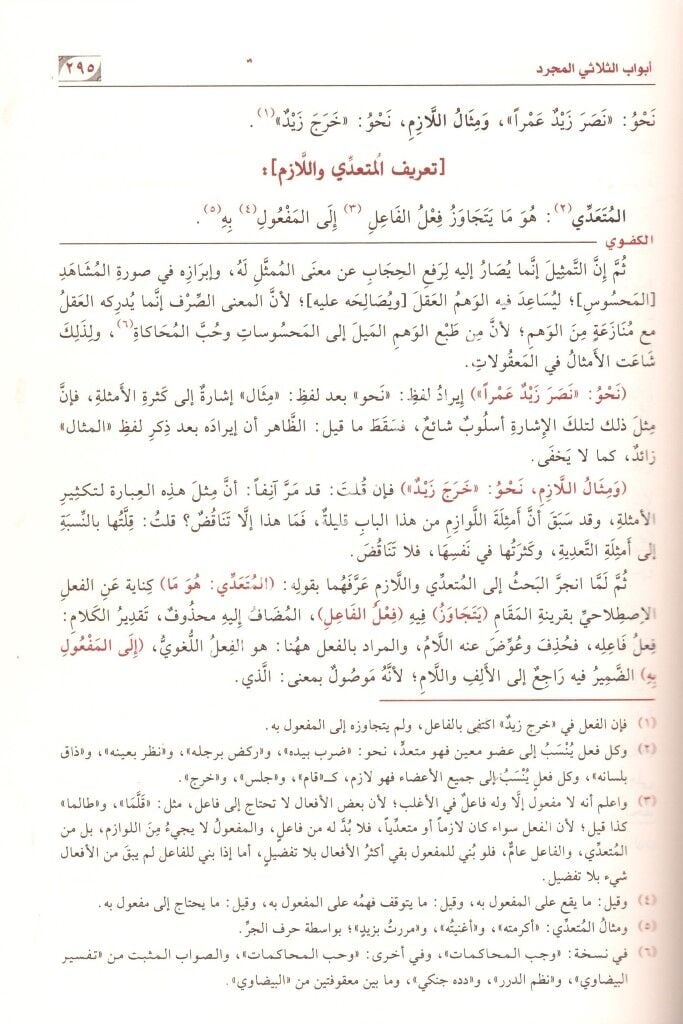 أبواب الثلاثي المجرد
٢٩٥
نَحْوُ: «نَصَرَ زَيْدٌ عَمْراً»، وَمِثَالُ اللَّازِمِ، نَحْوُ: «خَرَجَ زَيْدٌ»(١).
[تعريف المتعدِّي واللَّازم]:
المُتَعَدِّي(٢): هُوَ مَا يَتَجَاوَزُ فِعْلُ الفَاعِلِ(٣) إِلَى المَفْعُولِ(٤) بِهِ(٥).
الكفوي
ثُمَّ إِنَّ التَّمثِيلَ إنَّما يُصَارُ إليه لِرَفعِ الحِجَابِ عن معنَى المُمثَّلِ لَهُ، وإبرَازِه في صورةِ المُشَاهَدِ
[المَحسُوسِ]؛ ليُسَاعِدَ فيه الوَهمُ العَقلَ [ويُصَالِحَه عليه]؛ لأنَّ المعنى الصِّرْف إنَّما يُدرِكه العَقلُ
مع مُنَازَعَةٍ مِنَ الوَهمِ؛ لأنَّ مِن طَبْعِ الوَهمِ المَيلَ إلى المَحسُوساتِ وحُبَّ المُحَاكاةِ(٦)، ولِذَلِكَ
شَاعَت الأَمثالُ في المَعقُولاتِ.
(نَحْوُ: «نَصَرَ زَيْدٌ عَمْراً») إِيرادُ لفظِ: «نَحو» بعد لفظِ: «مِثَال» إشارةٌ إلى كَثرةِ الأمثلةِ، فإنَّ
مِثلَ ذلك لتلكَ الإشارةِ أسلُوبٌ شائعٌ، فسَقَطَ ما قيل: الظَّاهر أن إيرادَه بعد ذِكرِ لفظِ «المثال»
زائدٌ، كما لا يَخفَى.
(وَمِثَالُ اللَّازِمِ، نَحْوُ: «خَرَجَ زَيْدٌ») فإن قُلتَ: قد مَرَّ آنِفاً: أنَّ مِثلَ هذِه العِبارةِ لتكثِيرِ
الأمثلةِ، وقد سَبَقَ أنَّ أمثِلَةَ اللَّوازِمِ من هذا البابِ قليلةٌ، فَمَا هذا إلَّا تَنَاقُضٌ؟ قلتُ: قِلَّتُها بالنِّسبَةِ
إلى أمثِلَةِ التَّعدِيةِ، وكَثرَتُها في نَفسِهَا، فلا تَنَاقُضَ.
ثُمَّ لَمَّا انجرَّ البَحثُ إلى المُتعدِّي واللَّازمِ عَرَّفَهُما بقولِه: (المُتَعَدِّي: هُوَ مَا) كِنايةٌ عَنِ الفعلِ
الاصطِلاحيِّ بقرينةِ المَقَامِ (يَتَجَاوَزُ) فِيهِ (فِعْلُ الفَاعِلِ)، المُضَافُ إليه محذُوفٌ، تَقدِيرُ الكَلامِ:
فِعلُ فَاعِلِه، فحُذِفَ وعُوِّضَ عنه اللَّامُ، والمراد بالفعل ههُنا: هو الفِعلُ اللُّغويُّ، (إِلَى المَفْعُولِ
بِهِ) الضَّمِيرُ فيه رَاجِعٌ إلى الأَلِفِ واللَّامِ؛ لأنَّهُ مَوصُولٌ بمعنى: الَّذي.
(١) فإن الفعل في «خرج زيدٌ» اكتفى بالفاعل، ولم يتجاوزه إلى المفعول به.
(٢) وكل فعل يُنْسَبُ إلى عضو معين فهو متعدٍّ، نحو: «ضرب بيده»، و«ركض برجله»، و«نظر بعينه»، و«ذاق
بلسانه»، وكل فعلٍ يُنْسَبُ إلى جميع الأعضاء فهو لازم، كـ«قام»، و«جلس»، و«خرج».
(٣) واعلم أنه لا مفعول إلَّا وله فاعلٌ في الأغلب؛ لأن بعض الأفعال لا تحتاج إلى فاعل، مثل: «قَلَّمَا»، و«طالما»
كذا قيل؛ لأن الفعل سواء كان لازماً أو متعدِّياً، فلا بُدَّ له من فاعلٍ، والمفعولُ لا يجيءُ مِنَ اللوازم، بل من
المُتعدِّي، والفاعل عامٌّ، فلو بُني للمفعول بقي أكثرُ الأفعال بلا تفضيلٍ، أما إذا بني للفاعل لم يبقَ من الأفعال
شيء بلا تفضيل.
(٤) وقيل: ما يقع على المفعول به، وقيل: ما يتوقف فهمُه على المفعول به، وقيل: ما يحتاج إلى مفعول به.
(٥) ومثالُ المُتعدِّي: «أكرمته»، و«أغنيتُه»، و«مررتُ بزيدٍ»؛ بواسطة حرف الجرِّ.
(٦) في نسخة: «وجب المحاكمات»، وفي أخرى: «وحب المحاكمات»، والصواب المثبت من «تفسير
البيضاوي»، و«نظم الدرر»، و«دده جنكي»، وما بين معقوفتين من «البيضاوي».